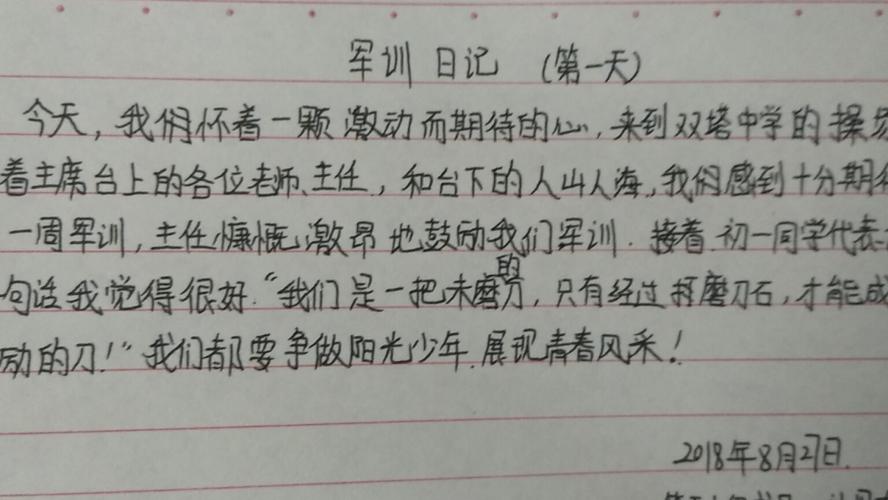 军训 日记 (第一天)
今天，我们怀着一颗激动而期待的心，来到双塔中学的操
着主席台上的各位老师、主任，和台下的人山人海，我们感到十分期
一周军训，主任慷慨激昂地鼓励我们军训．接着．初一同学代表
句话我觉得很好．“我们是一把未磨的刀，只有经过磨刀石，才能成
的刀！”我们都要争做阳光少年．展现青春风采！
2018年8月27日．